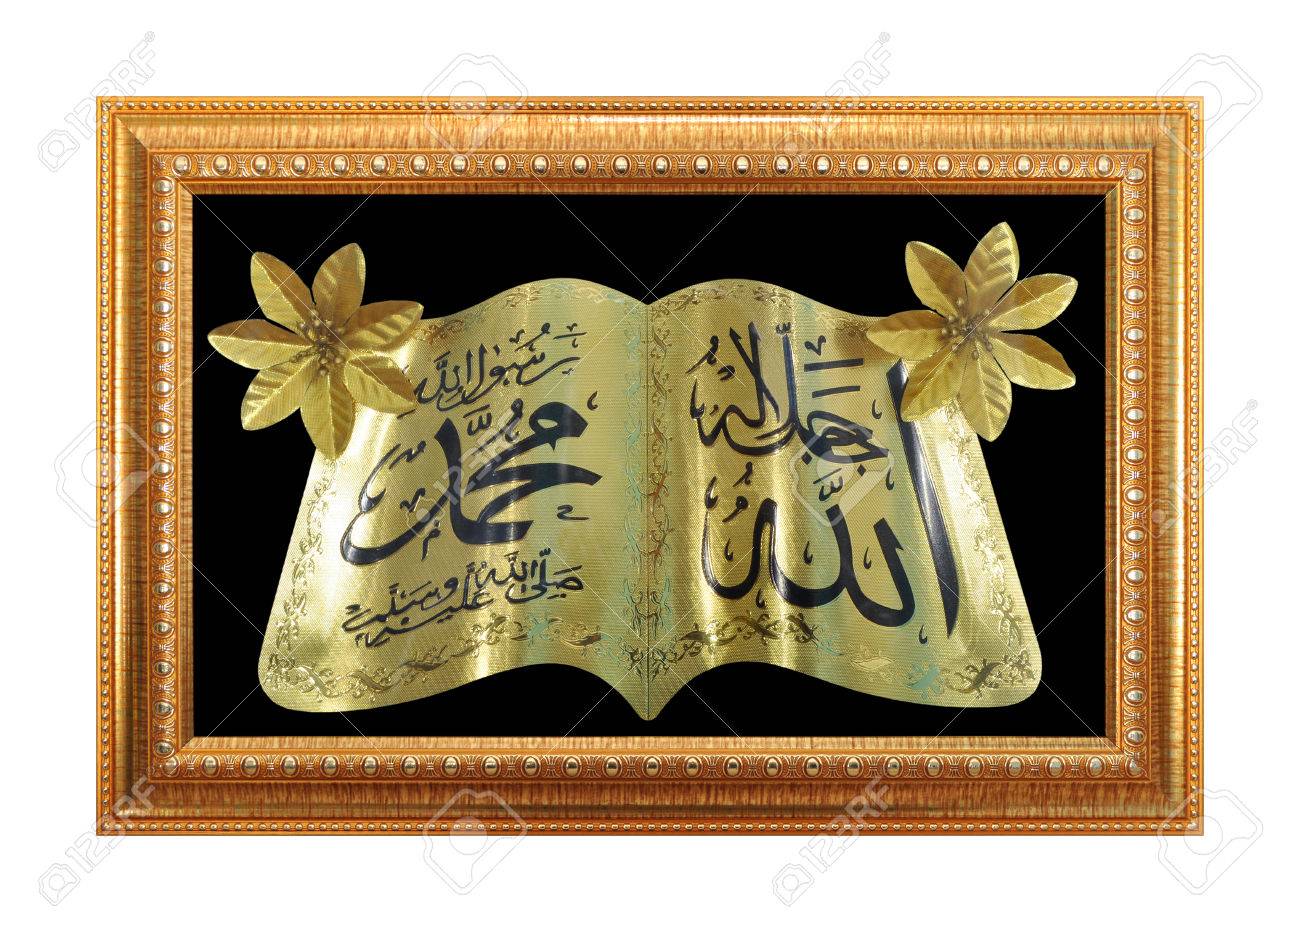 جل جلاله
الله
رسول الله
محمد
صلى الله عليه وسلم
123RF